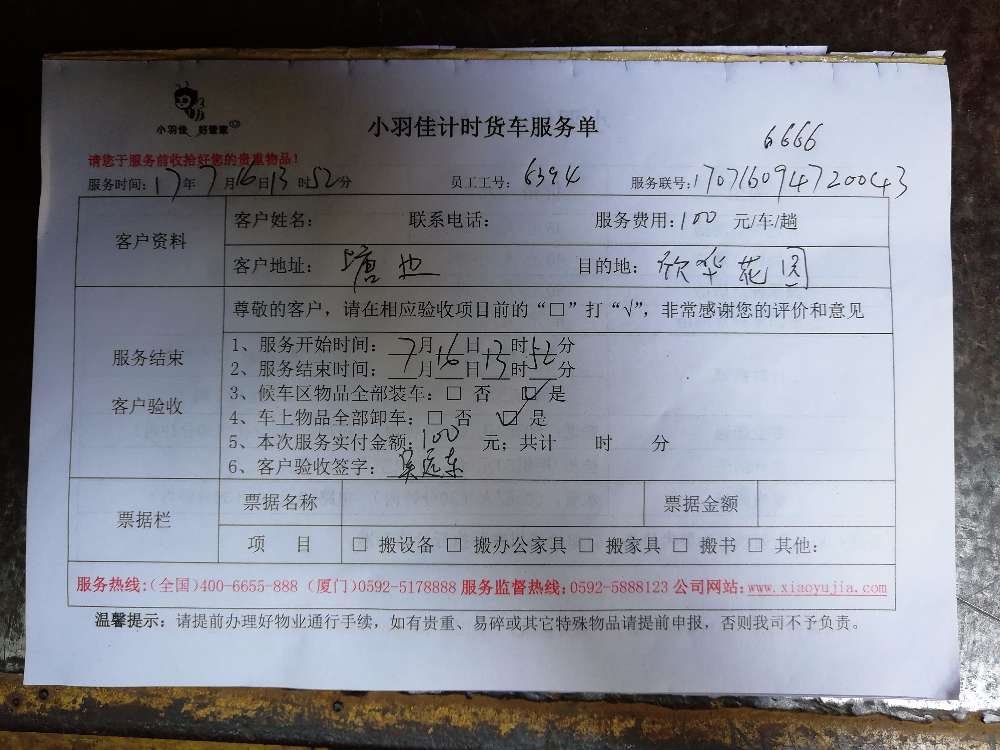 小羽佳 好管家
小羽佳计时货车服务单
6666
请您于服务前收拾好您的贵重物品！
服务时间：17年7月16日13时52分 员工工号：6394 服务联号：170716094720043
客户资料
客户姓名： 联系电话： 服务费用：100 元/车/趟
客户地址：塘边 目的地：欣华花园
尊敬的客户，请在相应验收项目前的“□”打“√”，非常感谢您的评价和意见
服务结束
客户验收
1、服务开始时间：7月16日13时52分
2、服务结束时间：月 日 时 分
3、候车区物品全部装车：□ 否 ☑ 是
4、车上物品全部卸车：□ 否 ☑ 是
5、本次服务实付金额：100 元；共计 时 分
6、客户验收签字：吴远东
票据栏
票据名称 票据金额
项 目 □ 搬设备 □ 搬办公家具 □ 搬家具 □ 搬书 □ 其他：
服务热线:(全国)400-6655-888 (厦门)0592-5178888 服务监督热线:0592-5888123 公司网站:www.xiaoyujia.com
温馨提示：请提前办理好物业通行手续，如有贵重、易碎或其它特殊物品请提前申报，否则我司不予负责。